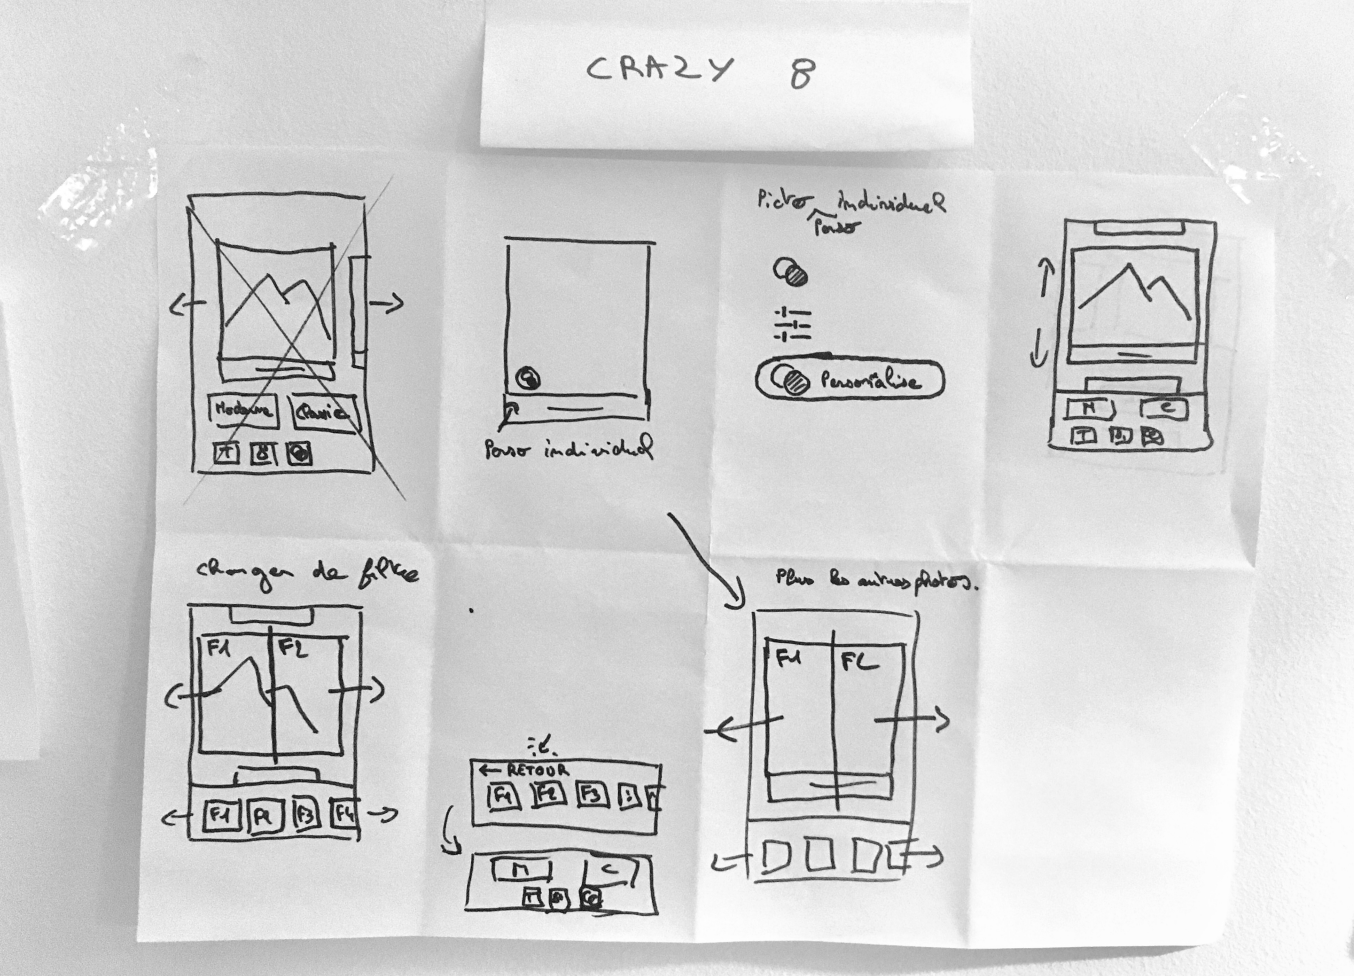 CRAZY 8
Moderne
Classic
T
B
Perso individuel
Picto individuel
Perso
Personalise
M
C
T
B
changer de filtre
F1
F2
F1
F2
F3
F4
← RETOUR
F1
F2
F3
M
C
T
Plus les autres photos.
F1
F2